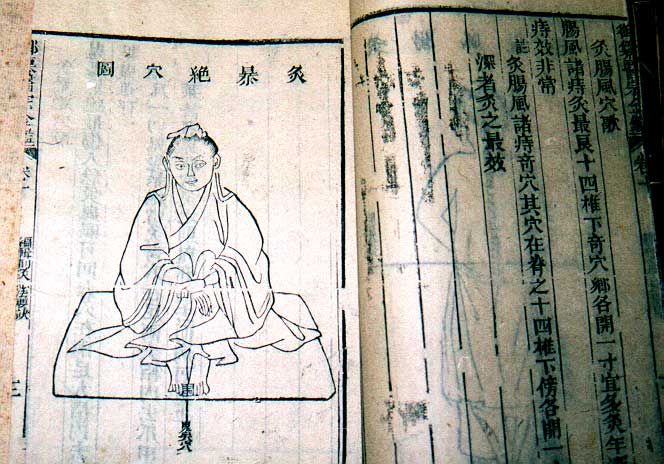 灸腸風穴歌
腸風諸痔灸最良十四椎下奇穴鄉各開一寸宜多灸年
痔效非常
註灸腸風諸痔奇穴其穴在脊之十四椎下傍各開一
深者灸之最效
灸暴絕穴圖
醫宗金鑑
編輯刺灸心法要訣